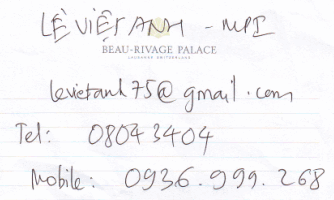 LÊ VIỆT ANH - MPI
BEAU-RIVAGE PALACE
LAUSANNE SWITZERLAND
levietanh75@gmail.com
Tel: 08043404
Mobile: 0936.999.268